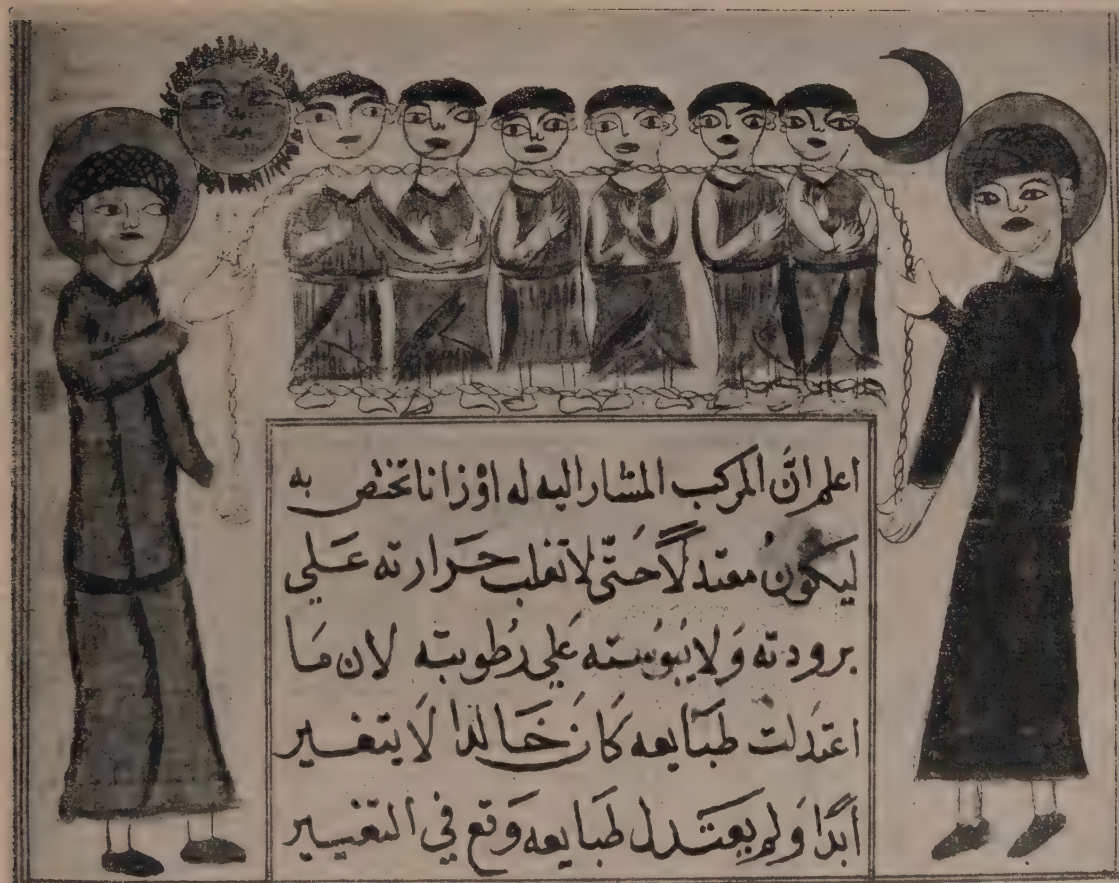 اعلم انّ المركب المشار اليه له اوزانا تختص به
ليكون معتدلًا حتّى لا تغلب حرارته على
برودته ولا يبوسته على رطوبته لان ما
اعتدلت طبايعه كان خالدا لا يتغير
أبدًا ولم يعتدل طبايعه وقع في التغيير